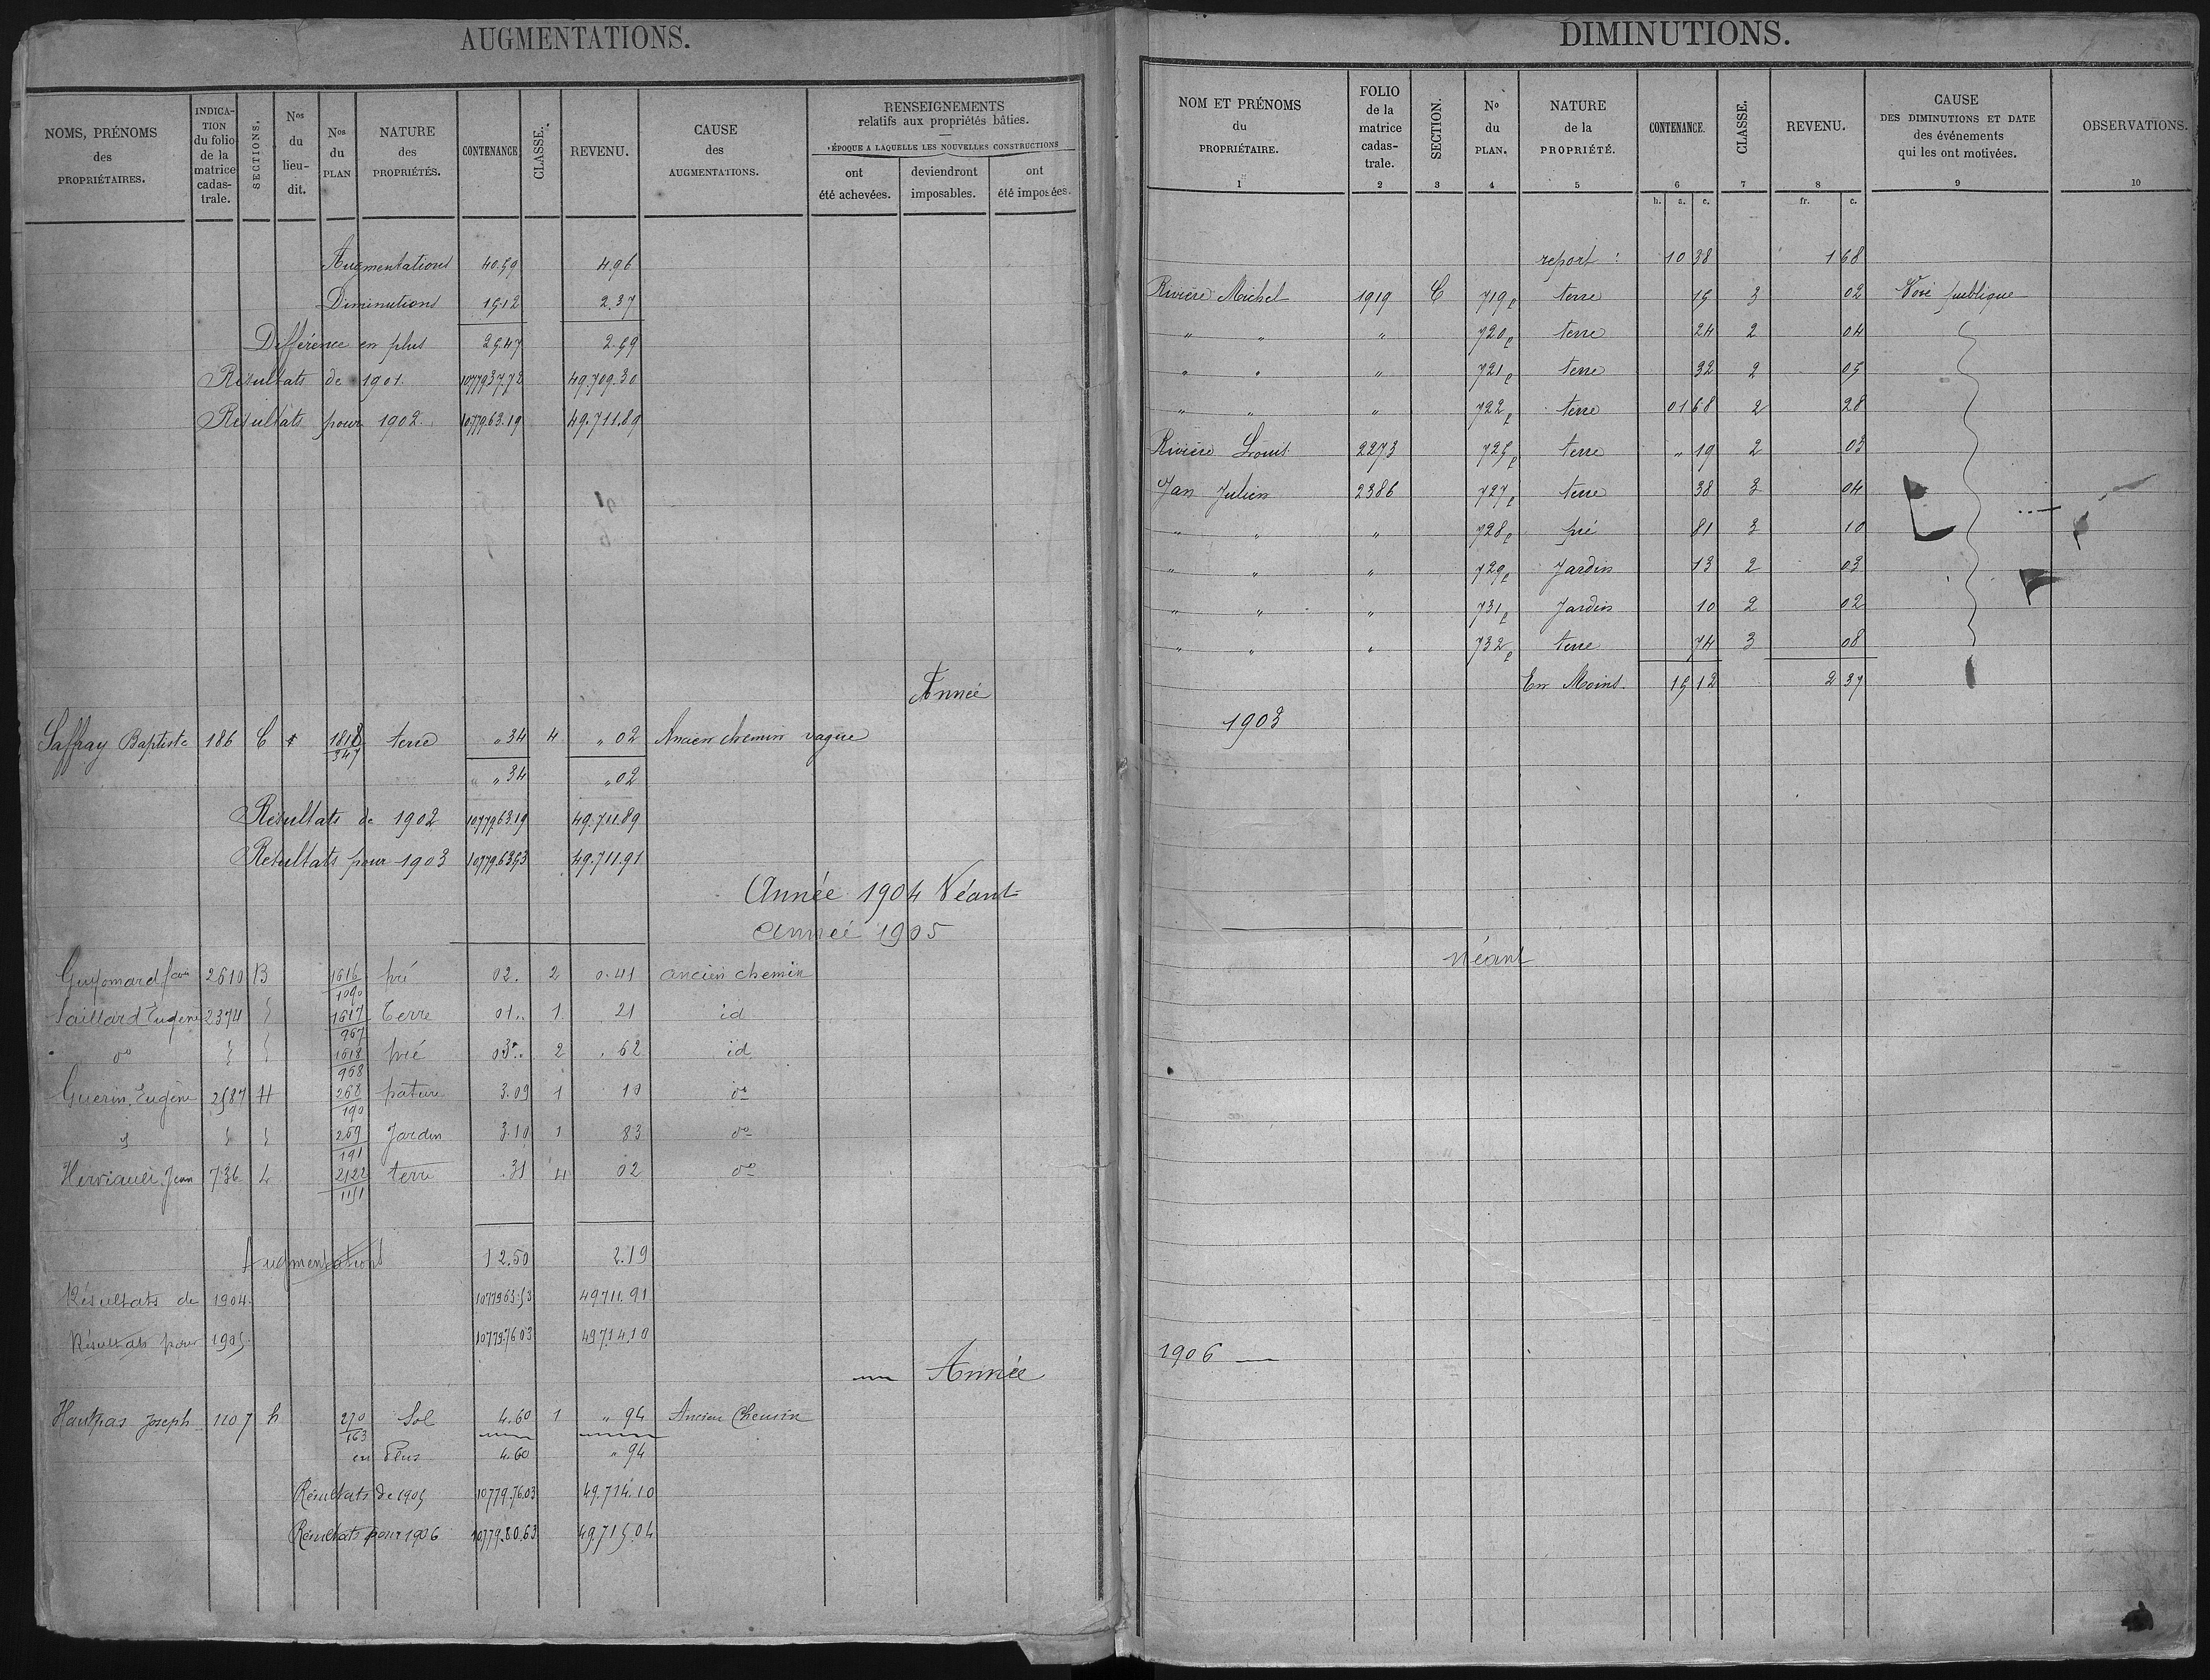 AUGMENTATIONS.
NOMS, PRÉNOMS des PROPRIÉTAIRES.
INDICA-TION du folio de la matrice cadas-trale.
SECTIONS.
Nos du lieu-dit.
Nos du PLAN
NATURE des PROPRIÉTÉS.
CONTENANCE
CLASSE.
REVENU.
CAUSE des AUGMENTATIONS.
RENSEIGNEMENTS relatifs aux propriétés bâties.
ÉPOQUE A LAQUELLE LES NOUVELLES CONSTRUCTIONS
ont été achevées.
deviendront imposables.
ont été imposées.
Augmentations 40.59 4.96
Diminutions 15.12 2.37
Différence en plus 25.47 2.59
Résultats de 1901. 1077937.72 49.709.30
Résultats pour 1902. 1077963.19 49.711.89
Année
Saffray Baptiste 186 C 1818/347 terre " 34 4 " 02 Ancien chemin vague
" " 34 " 02
Résultats de 1902 1077963.19 49.711.89
Résultats pour 1903 1077963.53 49.711.91
Année 1904 Néant
Année 1905
Guyomard 2610 B 1616/1090 pré 02. 2 0.41 ancien chemin
Saillard Eugène 2374 1617/967 Terre 01.. 1 21 id
do 1618/968 pré 03.. 2 . 62 id
Guérin Eugène 2587 H 268/190 pature 3.09 1 10 do
269/191 Jardin 3.10 1 83 do
Herviault Jean 736 L 2122/1151 terre .31 4 02 do
Augmentations 12.50 2.19
Résultats de 1904. 1077963.53 49711.91
Résultats pour 1905. 10779.7603 49714.10
Année
Hautpas Joseph 1107 h 270/163 Sol 4.60 1 " 94 Ancien Chemin
en Plus 4.60 " 94
Résultats de 1905 10779.76.03 49.714.10
Résultats pour 1906 10779.80.63 49.715.04
DIMINUTIONS.
NOM ET PRÉNOMS du PROPRIÉTAIRE.
FOLIO de la matrice cadas-trale.
SECTION.
No du PLAN.
NATURE de la PROPRIÉTÉ.
CONTENANCE.
CLASSE.
REVENU.
CAUSE DES DIMINUTIONS ET DATE des événements qui les ont motivées.
OBSERVATIONS.
1 2 3 4 5 6 7 8 9 10
h. a. c. fr. c.
report : 10 38 1 68
Rivière Michel 1919 C 719p terre 15 3 02 Voie publique
" " " 720p terre 24 2 04
" " " 721p terre 32 2 05
" " " 722p terre 01 68 2 28
Rivière Louis 2273 725p terre " 19 2 03
Jan Julien 2386 727p terre 38 3 04
" " " 728p pré 81 3 10
" " " 729p Jardin 13 2 03
" " " 731p Jardin 10 2 02
" " " 732p terre 74 3 08
En Moins 15 12 2 37
1903
Néant
1906